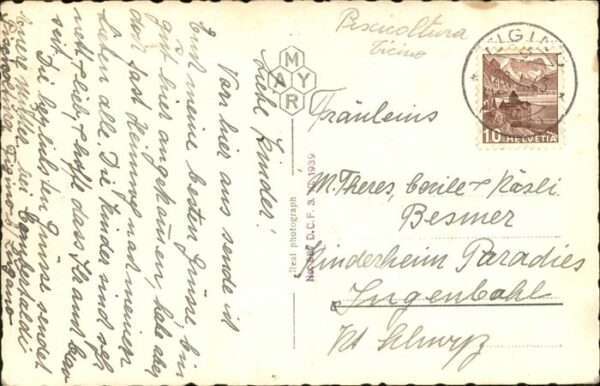 Pescicoltura
Ticino
LUGINO
10 HELVETIA
MAYR
Real photograph
D.C.F. 1939
Fräuleins
M. Theres, Cecile & Käsli
Besmer
Kinderheim Paradies
Ingenbohl
Kt Schwyz
Liebe Kinder!
Von hier aus sende ich
Euch meine besten Grüsse bin
gut hier angekommen, habe aber
fast Heimweh nach meinen
lieben alle. Die Kinder sind sehr
nett & lieb, & hoffe dass Ihr auch brav
seit.
Die herzlichsten Grüsse sendet
Eure Mutter bei